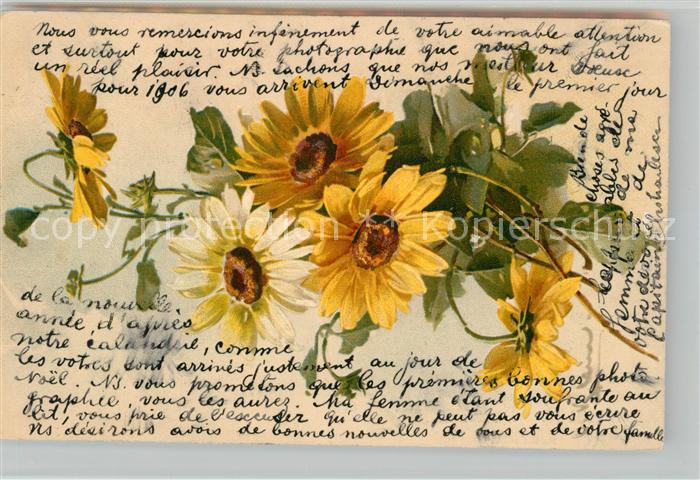 Nous vous remercions infénement de votre aimable attention
et surtout pour votre photographie que nous ont fait
un réel plaisir. Ns sachons que nos
pour 1906 vous arrivent Dimanche le premier jour
de la nouvelle
année, d'après
notre calandrie, comme
les votres sont arrivés justement au jour de
Noël. Ns. vous prometons que les premières bonnes photo-
graphée, vous les aurez. Ma femme étant soufrante au
lit, vous prie de l'escuser qu'elle ne peut pas vous écrire
Ns désirons avois de bonnes nouvelles de vous et de votre famille
Bien de
choses agré-
ables de
de ma
femme et de
votre dévoué
copyright picclick